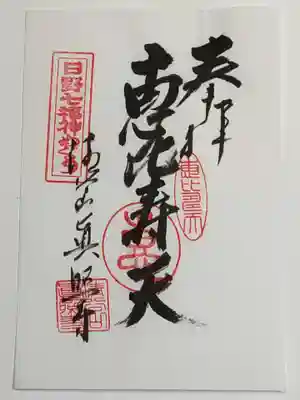 奉拝
恵比寿天
恵比寿天
日野七福神めぐり
山真照寺